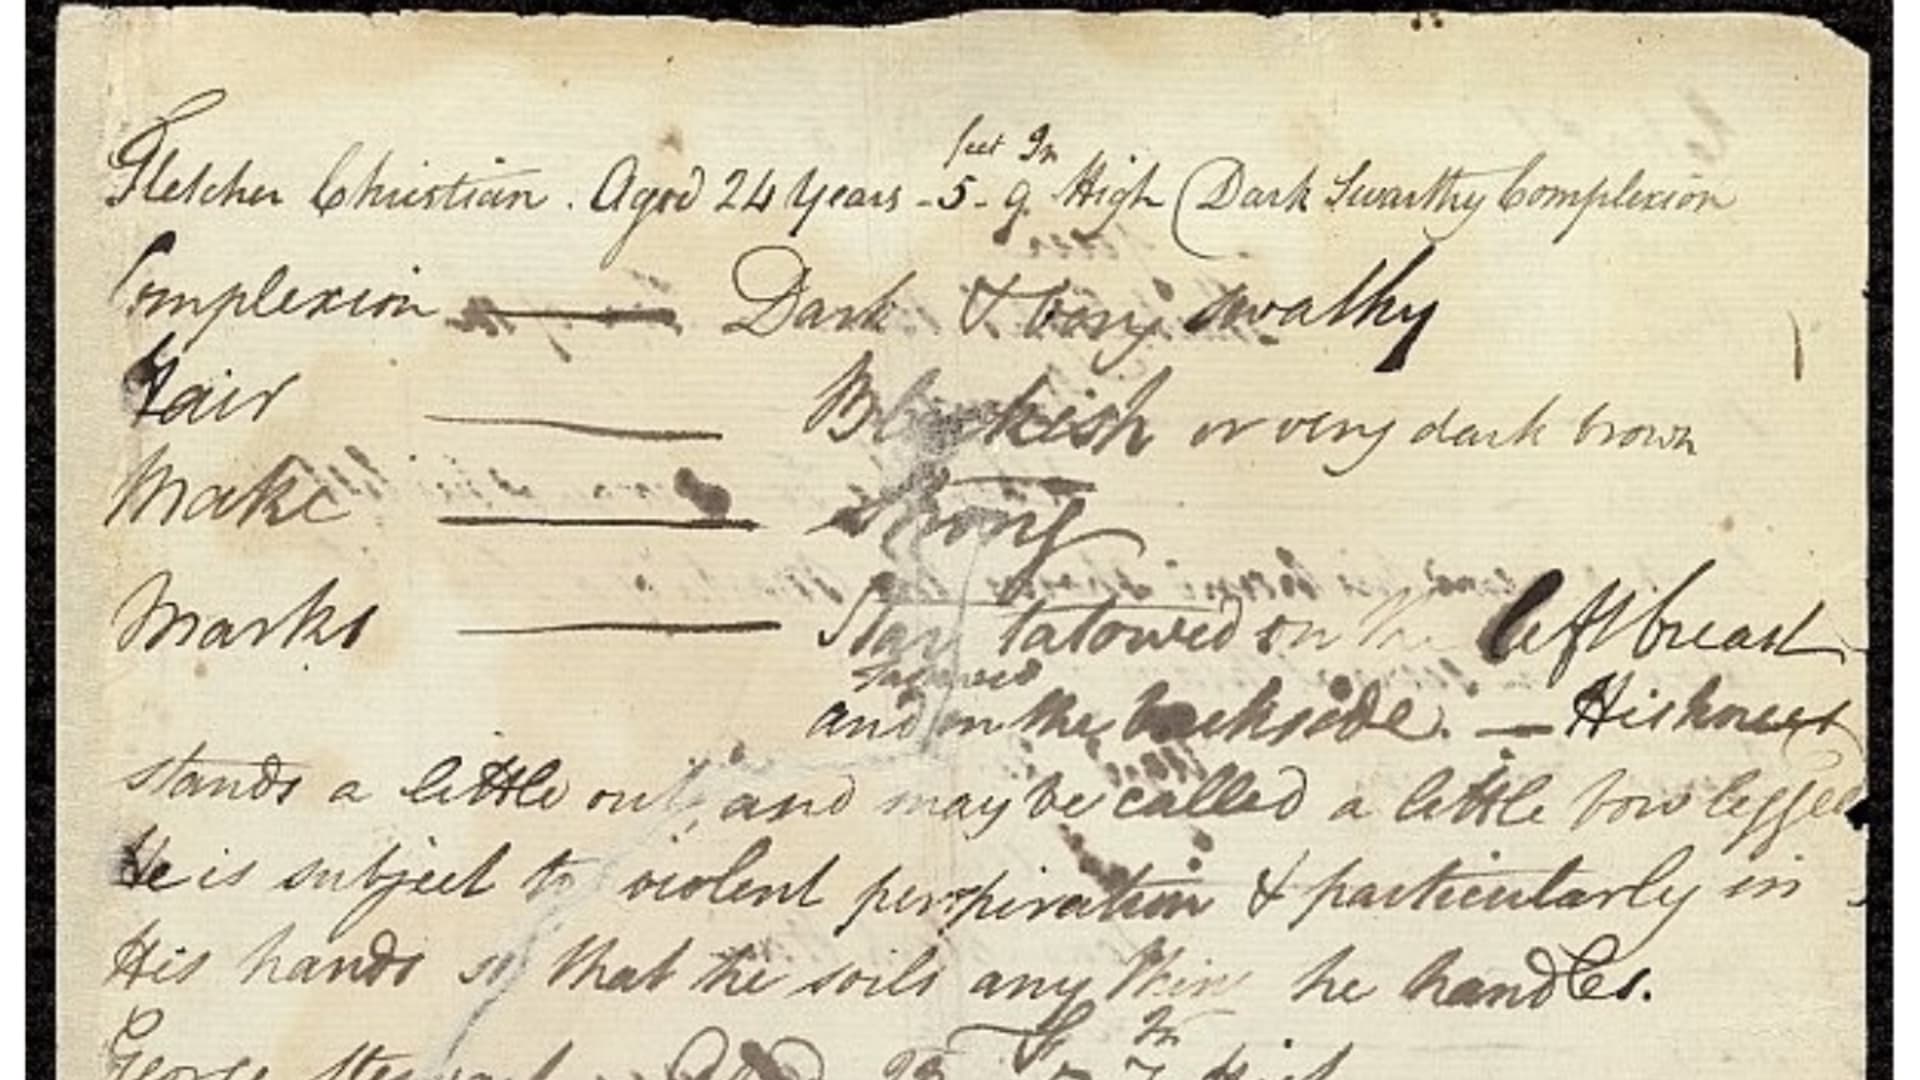 feet In
Fletcher Christian. Aged 24 Years - 5 - 9 High (Dark Swarthy Complexion
Complexion — Dark & very swathy
Hair — Blackish or very dark brown
Make — Strong
Marks — Star tatowed on the left breast
tatowed
and on the backside. — His knees
stands a little out and may be called a little bow legged
He is subject to violent perspiration & particularly in
His hands so that he soils any thing he handles.
George Stewart Aged 23 5 7 High